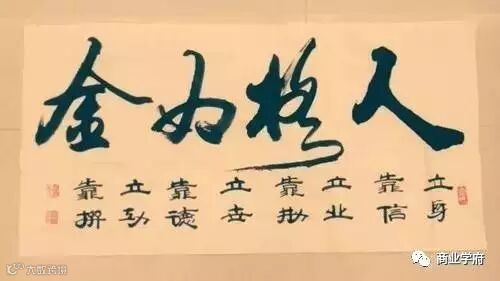 人格如金
立身
靠信
立业
靠勤
立世
靠德
立功
靠拼
大数跨境
商业学府